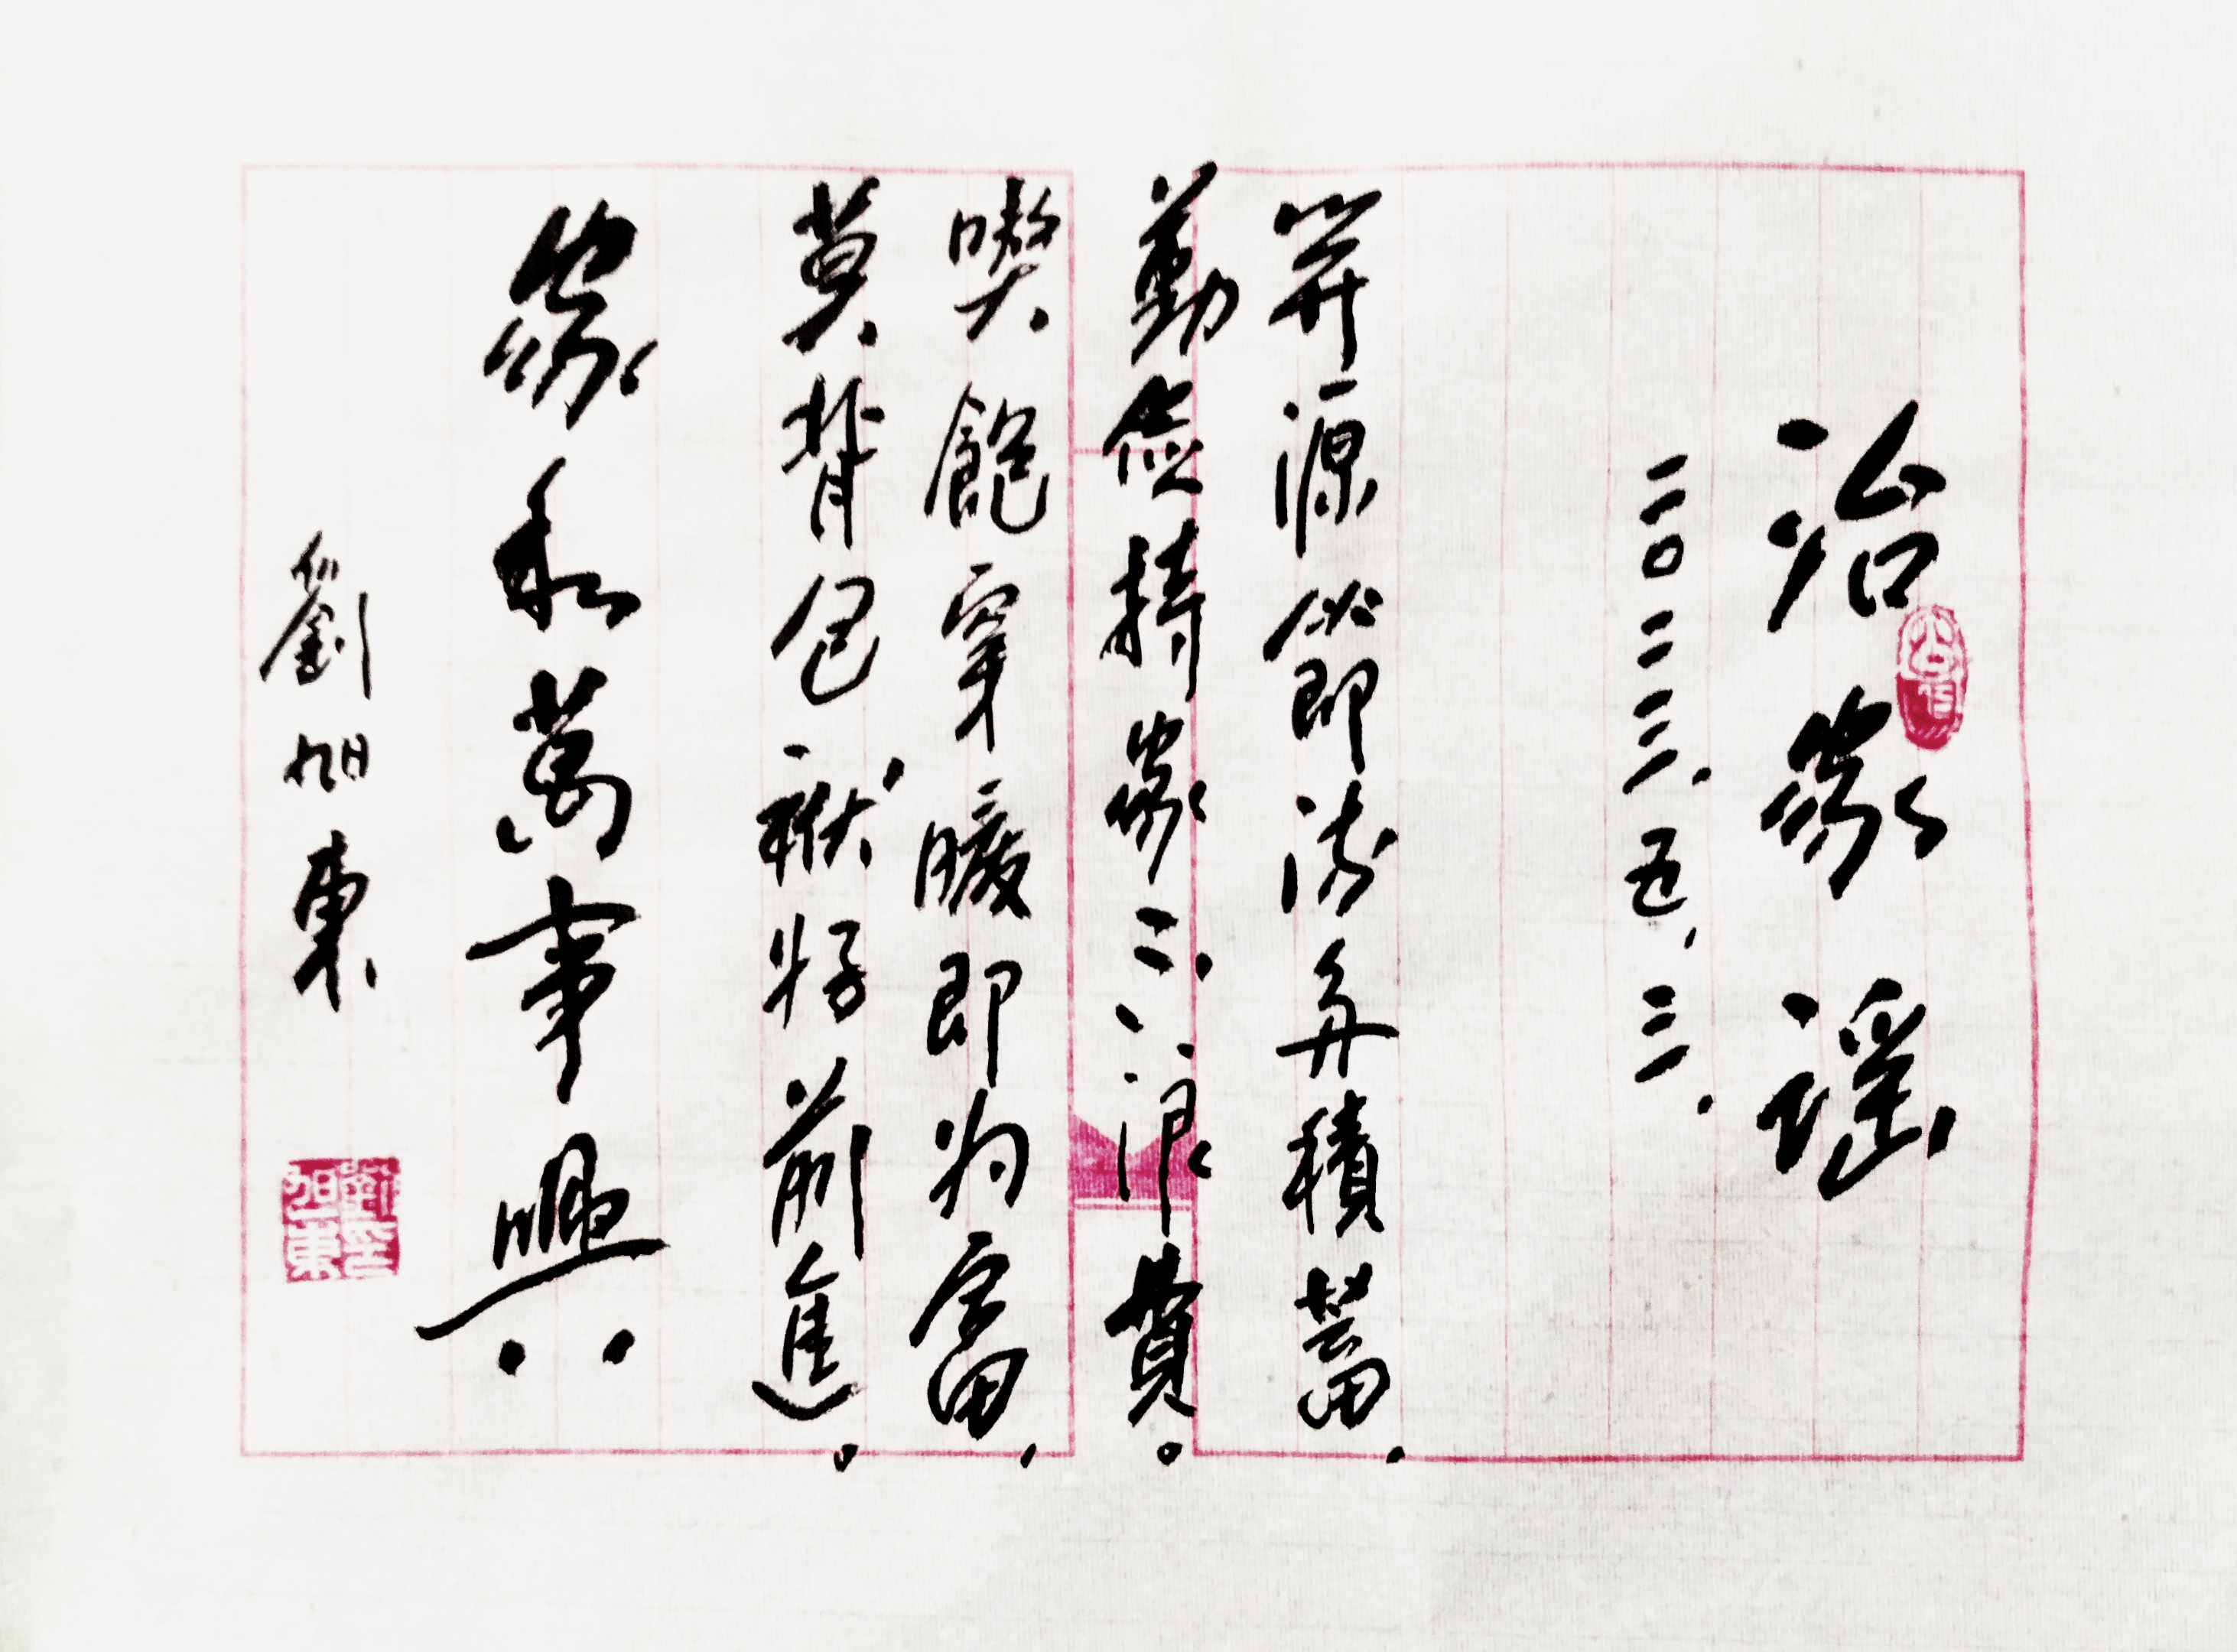 治家謡
二〇二三.五.三.
開源節流積蓄,
勤儉持家不浪費。
喫飽穿暖即为富,
莫背包袱好前進。
家和萬事興
劉旭東
劉旭東印